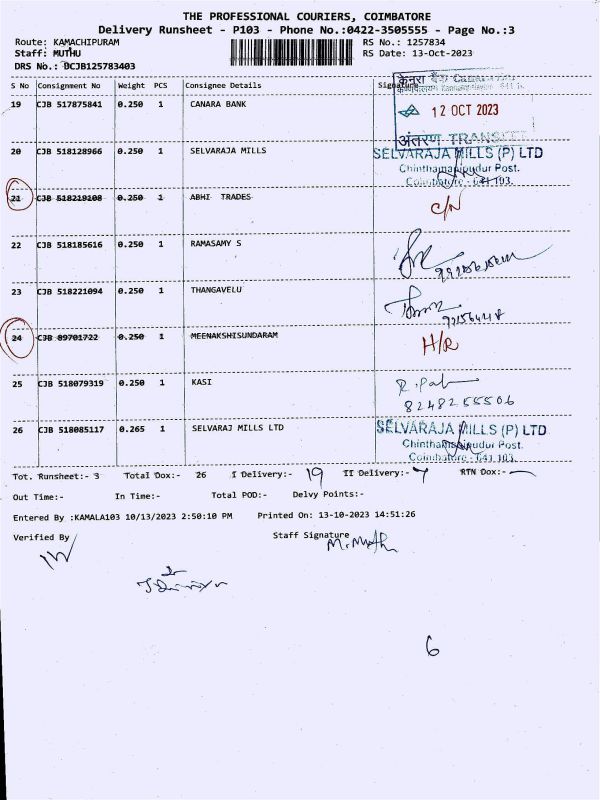 THE PROFESSIONAL COURIERS, COIMBATORE
Delivery Runsheet - P103 - Phone No.:0422-3505555 - Page No.:3
Route: KAMACHIPURAM RS No.: 1257834
Staff: MUTHU RS Date: 13-Oct-2023
DRS No.: DCJB125783403
S No Consignment No Weight PCS Consignee Details Signature
19 CJB 517875841 0.250 1 CANARA BANK
केनरा बैंक
12 OCT 2023
अंतरण TRANSFER
20 CJB 518128966 0.250 1 SELVARAJA MILLS SELVARAJA MILLS (P) LTD
Chinthamanipudur Post.
Coimbatore - 641 103.
21 CJB 518219108 0.250 1 ABHI TRADES C/N
22 CJB 518185616 0.250 1 RAMASAMY S
23 CJB 518221094 0.250 1 THANGAVELU
24 CJB 89701722 0.250 1 MEENAKSHISUNDARAM H/R
25 CJB 518079319 0.250 1 KASI
8248255506
26 CJB 518085117 0.265 1 SELVARAJ MILLS LTD SELVARAJA MILLS (P) LTD
Chinthamanipudur Post.
Coimbatore - 641 103.
Tot. Runsheet:- 3 Total Dox:- 26 I Delivery:- 19 II Delivery:- 7 RTN Dox:-
Out Time:- In Time:- Total POD:- Delvy Points:-
Entered By :KAMALA103 10/13/2023 2:50:10 PM Printed On: 13-10-2023 14:51:26
Verified By Staff Signature
6